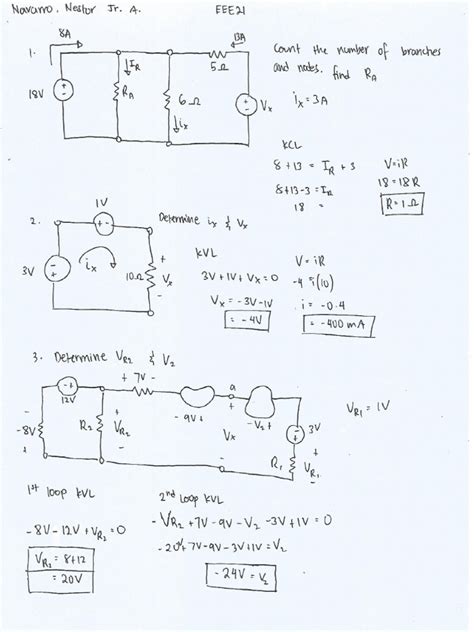 Navarro, Nestor Jr. A.
EEE21
1.
8A
13A
5Ω
IR
RA
18V
6Ω
ix
Vx
Count the number of branches
and nodes, find RA
ix = 3A
KCL
8 + 13 = IR + 3
8 + 13 - 3 = IR
18 =
V = iR
18 = 18R
R = 1Ω
2.
1V
+ -
Determine ix & Vx
3V
ix
10Ω
+
Vx
-
KVL
3V + 1V + Vx = 0
Vx = -3V - 1V
= -4V
V = iR
-4 = i(10)
i = -0.4
= -400 mA
3. Determine VR2 & V2
+ 7V -
- +
12V
- 9V +
a
- V2 +
-
-8V
+
R2
+
VR2
-
+
Vx
-
3V
R1
+
VR1
-
VR1 = 1V
1st loop KVL
-8V - 12V + VR2 = 0
VR2 = 8 + 12
= 20V
2nd loop KVL
-VR2 + 7V - 9V - V2 - 3V + 1V = 0
-20V + 7V - 9V - 3V + 1V = V2
-24V = V2